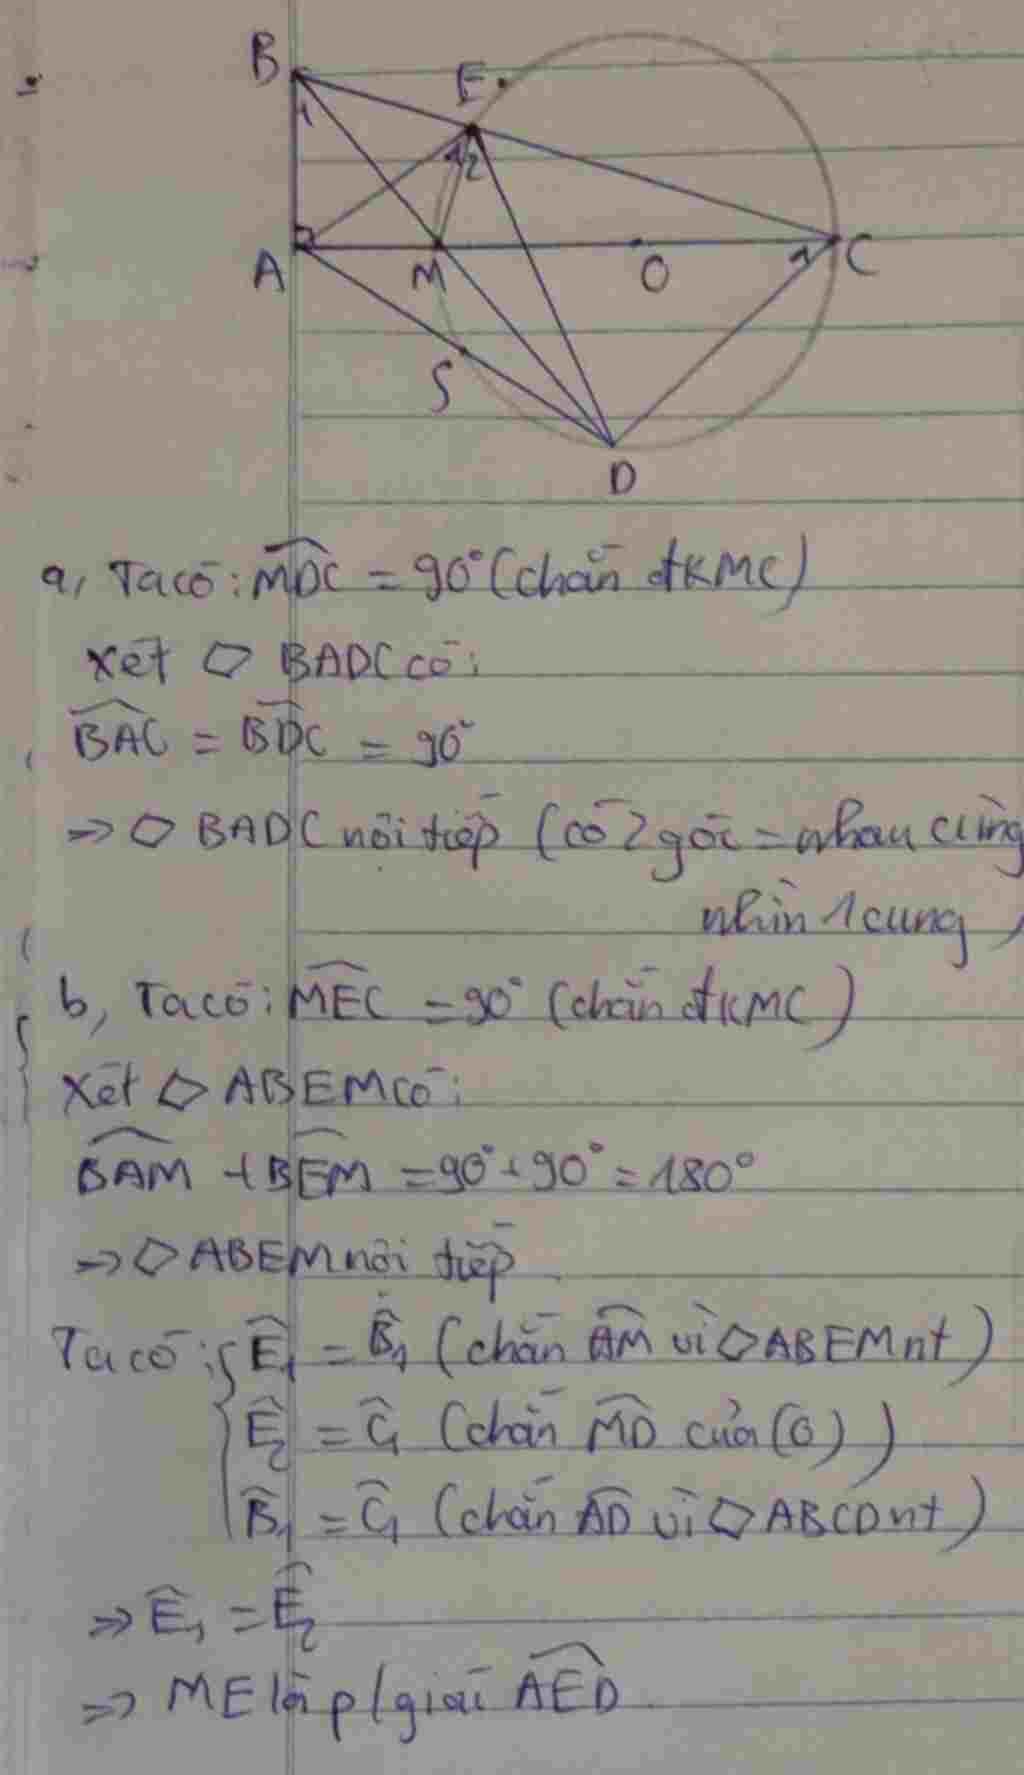 B
E
1
1 2
A
M
O
1
C
S
D
a, Ta có: MDC = 90° (chắn đk MC)
Xét ▱ BADC có:
BAC = BDC = 90°
=> ▱ BADC nội tiếp (có 2 góc = nhau cùng
nhìn 1 cung)
b, Ta có: MEC = 90° (chắn đk MC)
Xét ▱ ABEM có:
BAM + BEM = 90° + 90° = 180°
=> ▱ ABEM nội tiếp
Ta có: { Ê₁ = B̂₁ (chắn AM vì ▱ ABEM nt)
Ê₂ = Ĉ₁ (chắn MD của (O))
B̂₁ = Ĉ₁ (chắn AD vì ▱ ABCD nt)
=> Ê₁ = Ê₂
=> ME là p/giái AED